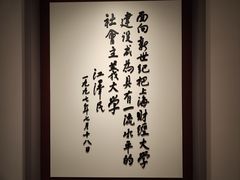 面向新世纪把上海财经大学
建设成为具有一流水平的
社會主義大学
江泽民
一九九七年七月十八日